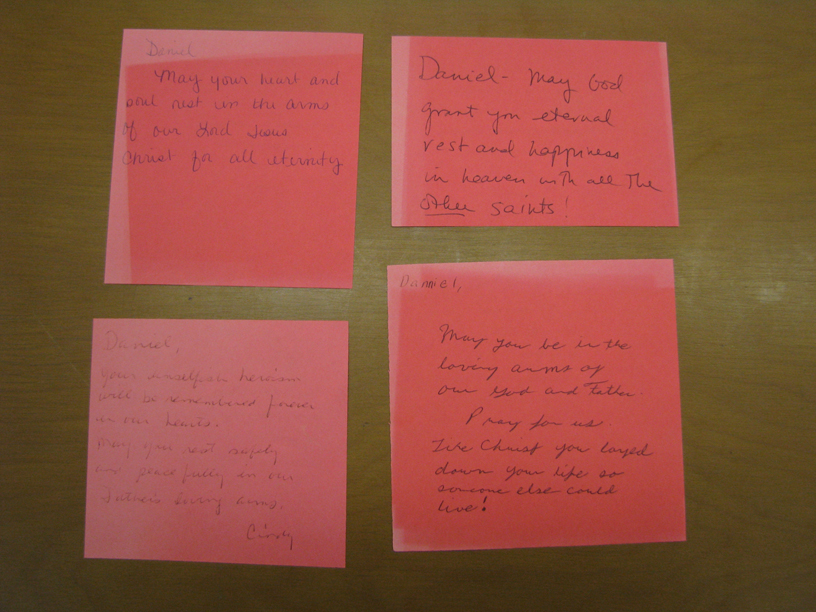 Daniel
May your heart and
soul rest in the arms
of our Lord Jesus
Christ for all eternity
Daniel - May God
grant you eternal
rest and happiness
in heaven with all The
other saints!
Daniel,
your unselfish heroism
will be remembered forever
in our hearts.
May you rest safely
and peacefully in our
Father's loving arms.
Cindy
Danniel,
May you be in the
loving arms of
our God and Father.
Pray for us.
Like Christ you layed
down your life so
someone else could
live!